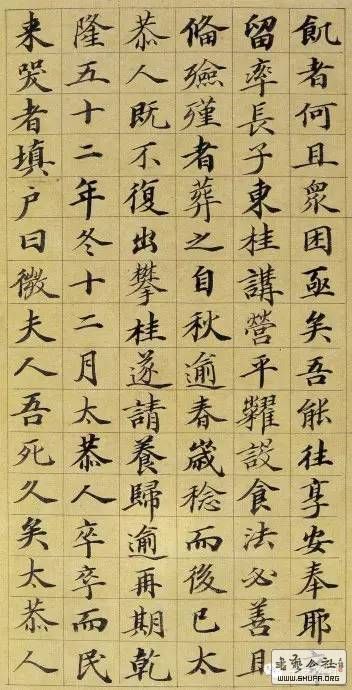 飢者何且眾困亟矣吾能往享安奉耶
留率長子東桂講營平糶設食法必善且
俻殮殣者葬之自秋逾春歲稔而後已太
恭人既不復出攀桂遂請養歸逾再期乾
隆五十二年冬十二月太恭人卒卒而民
来哭者填户曰微夫人吾死久矣太恭人
WWW.SHUFA.ORG